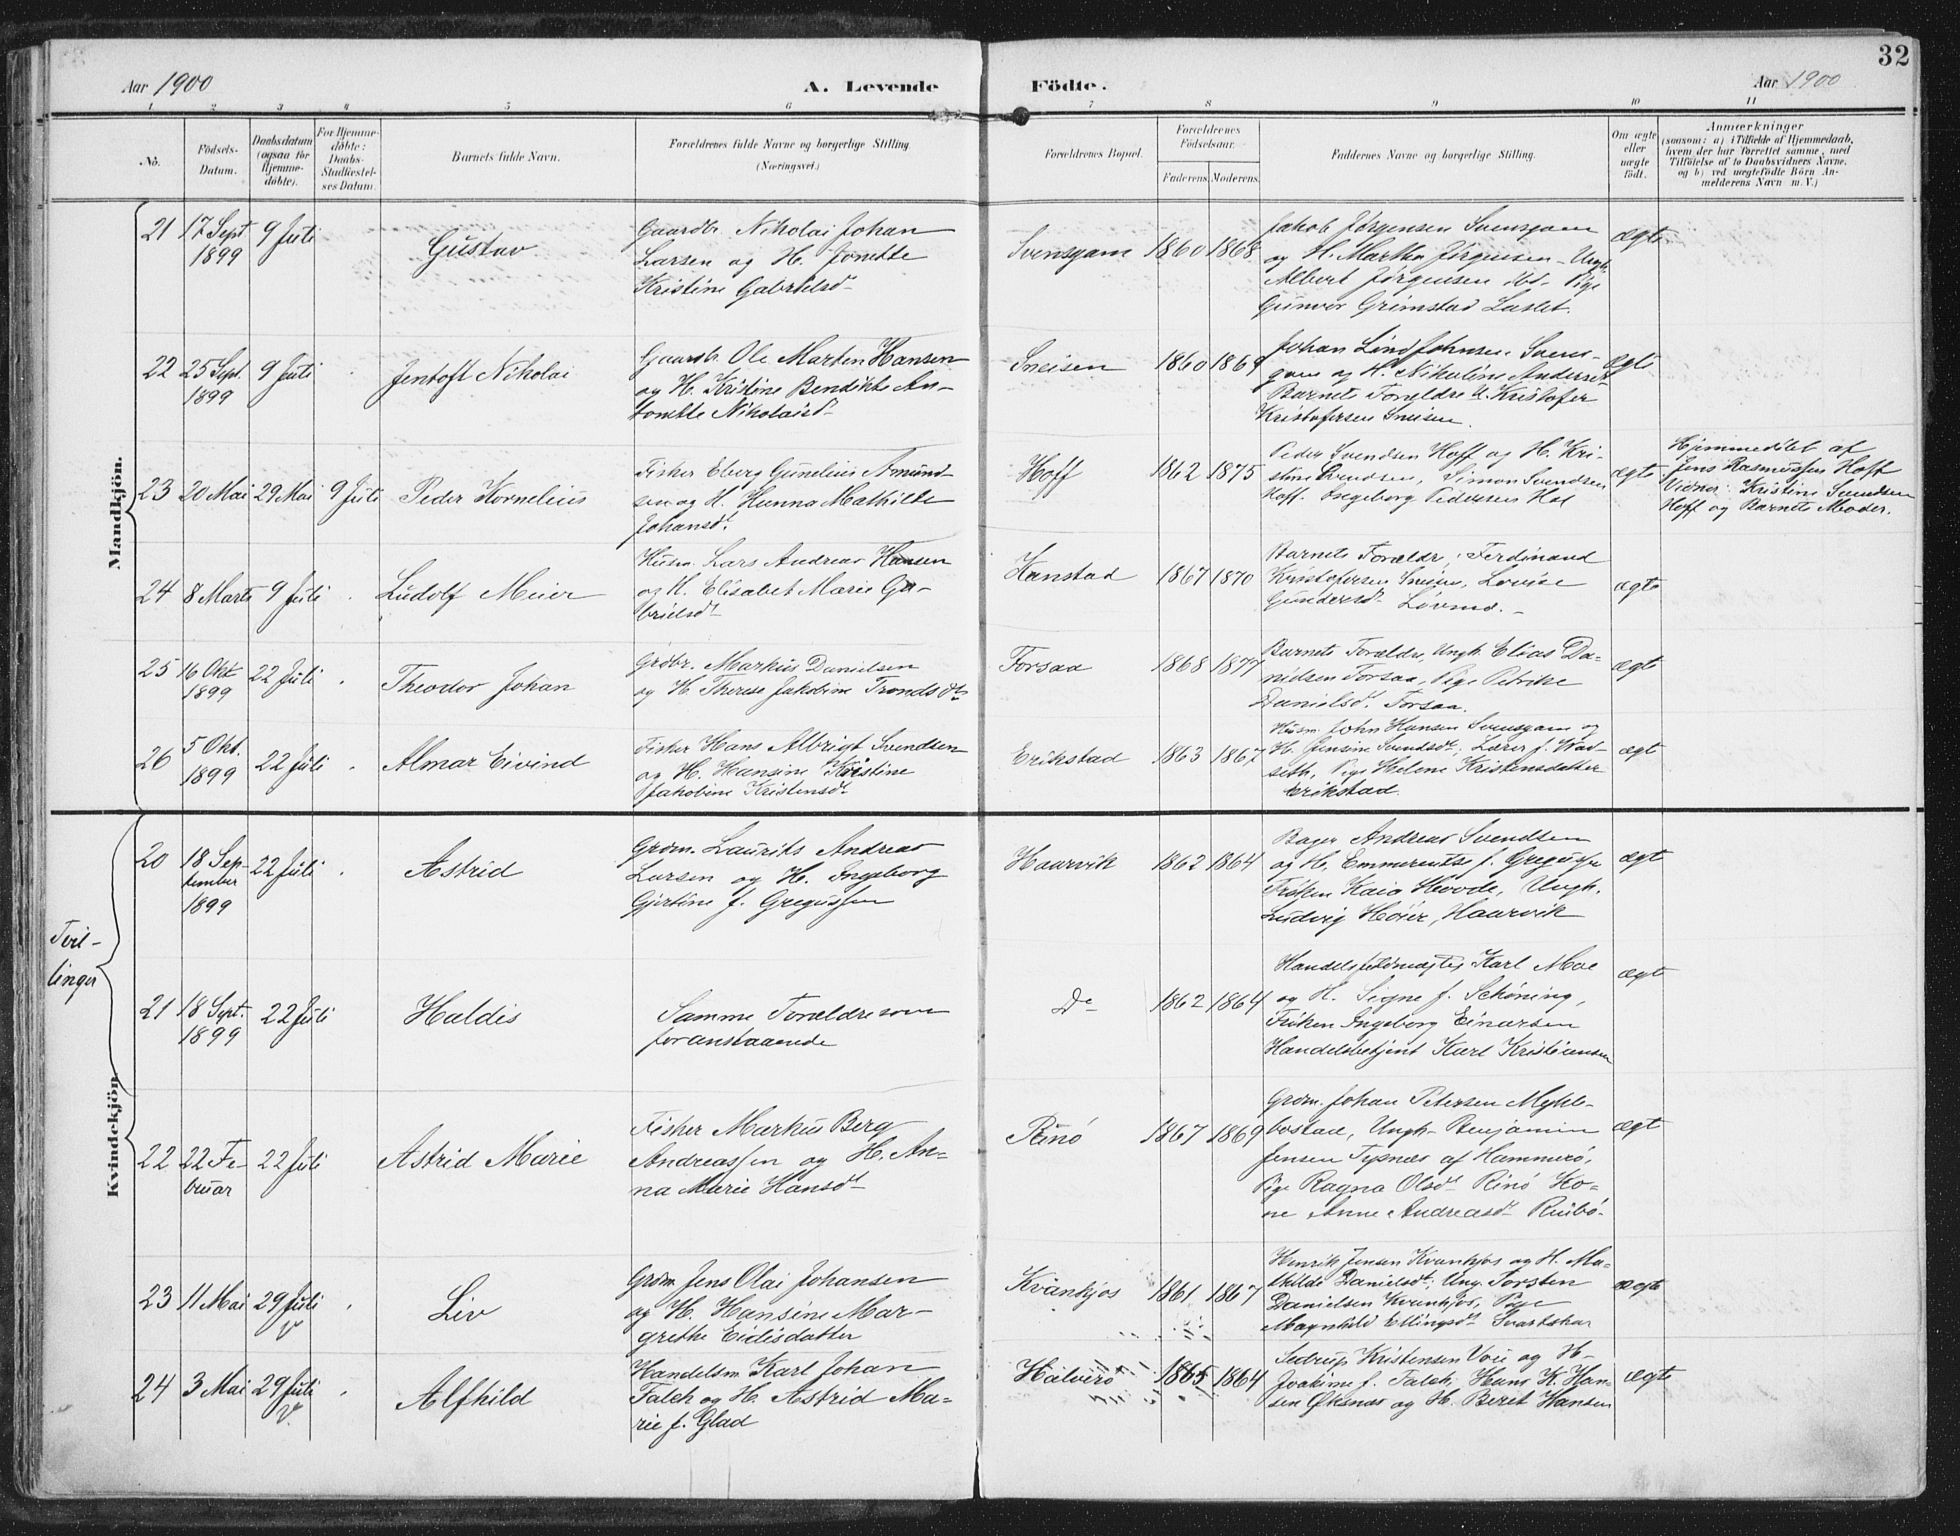 32
Aar 1900
A. Levende
Födte.
Aar 1900
1 2 3 4 5 6 7 8 9 10 11
No.
Födsels-
Datum.
Daabsdatum
(ogsaa for
Hjemme-
døbte).
For Hjemme-
døbte:
Daabs-
Stadfæstel-
ses Datum.
Barnets fulde Navn.
Forældrenes fulde Navne og borgerlige Stilling
(Næringsvei.)
Forældrenes Bopæl.
Forældrenes
Fødselsaar.
Faderens. Moderens.
Faddernes Navne og borgerlige Stilling.
Om ægte
eller
uægte
født.
Anmærkninger
(saasom: a) i Tilfælde af Hjemmedaab,
hvem der har forrettet samme, med
Tilføielse af to Daabsvidners Navne,
og b) ved uægtefødte Børn An-
melderens Navn m. V.)
Mandkjön.
21
17 Sept
1899
9 Juli
Gustav
Gaardbr. Nikolai Johan
Larsen og H. Jonette
Kristine Gabrielsd.
Svensgam
1860 1868
Jakob Jørgensen Svensgam
og H. Martha Jørgensen - Ungk.
Albert Jørgensen ibd. Pige
Gunvor Grimstad
ægte
22
25 Sept.
1899
9 Juli
Jentoft Nikolai
Gaardb. Ole Marten Hansen
og H. Kristine Bendikte An-
tonette Nikolaisd.
Sneisen
1860 1869
Johan Lind Johnsen Svens-
gam og H. Nikoline Anders
Barnets Forældre Kristofer
Kristofersen Sneisen.
ægte
23
20 Mai
29 Mai
9 Juli
Peder Kornelius
Fisker Eberg Gunelius Amund-
sen og H. Hanna Mathilde
Johansdt.
Hoff
1862 1875
Peder Svendsen Hoff og H. Kri-
stine Svendsen, Simon Svendsen
Hoff. Ingeborg Pedersen Hol
ægte
Hjemmedöbt af
Jens Rasmussen Hoff
Vidner: Kristine Svendsen
Hoff og Barnets Moder.
24
8 Marts
9 Juli
Ludolf Meier
Husm. Lars Andreas Hansen
og H. Elisabet Marie Ga-
brielsdt.
Kanstad
1867 1870
Barnets Forældre, Ferdinand
Kristofersen Sneisen, Lovise
Gundersdt.
ægte
25
16 Okt
1899
22 Juli
Theodor Johan
Grdbr. Markus Danielsen
og H. Therese Jakobine Trondsdt.
Forsaa
1868 1877
Barnets Forældre, Ungk. Elias Da-
nielsen Forsaa, Pige Petrike
Danielsdt. Forsaa.
ægte
26
5 Okt.
1899
22 Juli
Almar Eivind
Fisker Hans Albrigt Svendsen
og H. Hansine Kristine
Jakobine Kristensdt.
Erikstad
1863 1867
Husm. John Hansen Svensgam og
H. Jensine Svendsdt; Lærer J. Wad-
seth, Pige Helene Kristensdatter
Erikstad.
ægte
Kvindekjön
Tvil-
linger
20
18 Sep-
tember
1899
22 Juli
Astrid
Grdm. Laurits Andreas
Larsen og H. Ingeborg
Gjertine f. Gregussen
Haarvik
1862 1864
Bager Andreas Svendsen
og H. Emmerentse f. Gregusse
Frøken Kaia Hovde, Ungk.
Ludvig Høier, Haarvik
ægte
21
18 Sept.
1899
22 Juli
Haldis
Samme Forældre som
foranstaaende
Do
1862 1864
Handelsfuldmægtig Karl Moe
og H. Signe f. Schøning,
Frøken Ingeborg Einarsen
Handelsbetjent Karl Kristiansen
ægte
22
22 Fe-
bruar
22 Juli
Astrid Marie
Fisker Markus Berg
Andreassen og H. An-
na Marie Hansdt
Rinö
1867 1869
Grdm. Johan Petersen Mykle-
bostad, Ungk. Benjamin
Jensen Tysnæs af Hammerö,
Pige Ragna Olsdt Rinö Ko-
ne Anne Andreasdt Rinbö.
ægte
23
11 Mai
29 Juli
v
Liv
Grdm. Jens Olai Johansen
og H. Hansine Mar-
grethe Eidisdatter
Kvankjos
1861 1867
Henrik Jensen Kvankjos og H. Ma-
thilde Danielsdt; Ung. Torsten
Danielsen Kvankjos, Pige
Magnhild Ellingsdt Svartskar
ægte
24
3 Mai
29 Juli
v.
Alfhild
Handelsm. Karl Johan
Falch og H. Astrid Ma-
rie f. Glad
Halvarö
1865 1864
Sedrup Kristensen Voie og H.
Joakime f. Falch, Hans K. Han-
sen Øksnæs og H. Beret Hansen
ægte